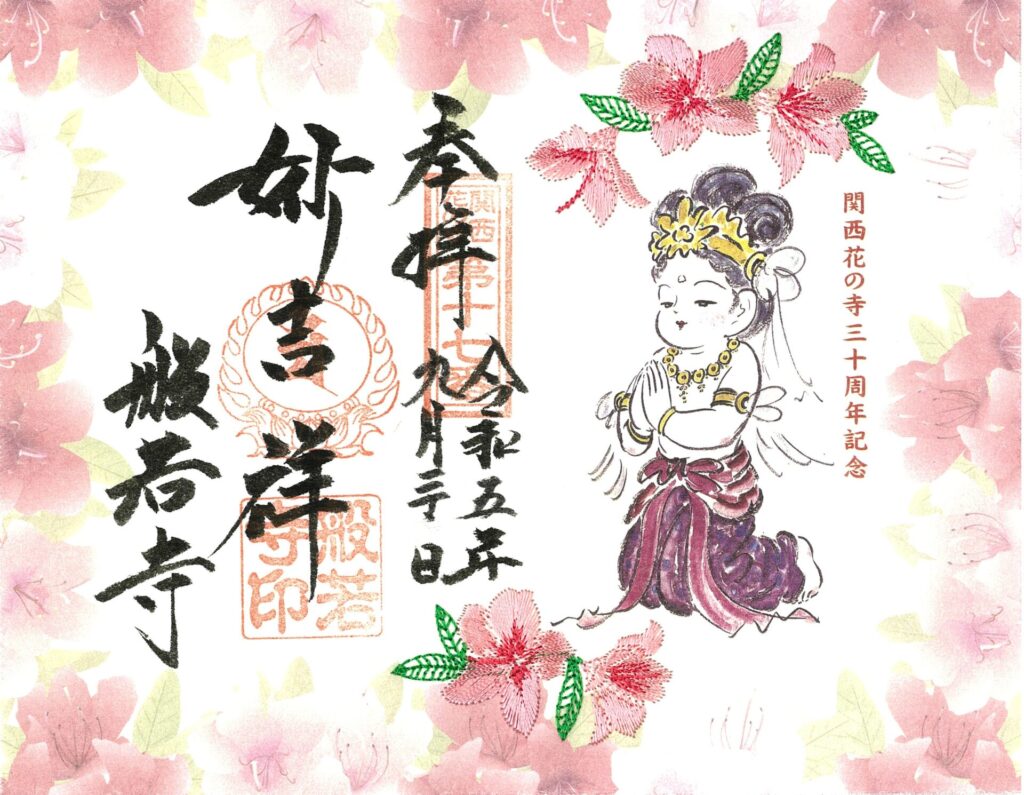 関西花の寺三十周年記念
奉拝
令和五年
九月二日
妙吉祥
般若寺
関西花の寺
第十七番
般若寺印